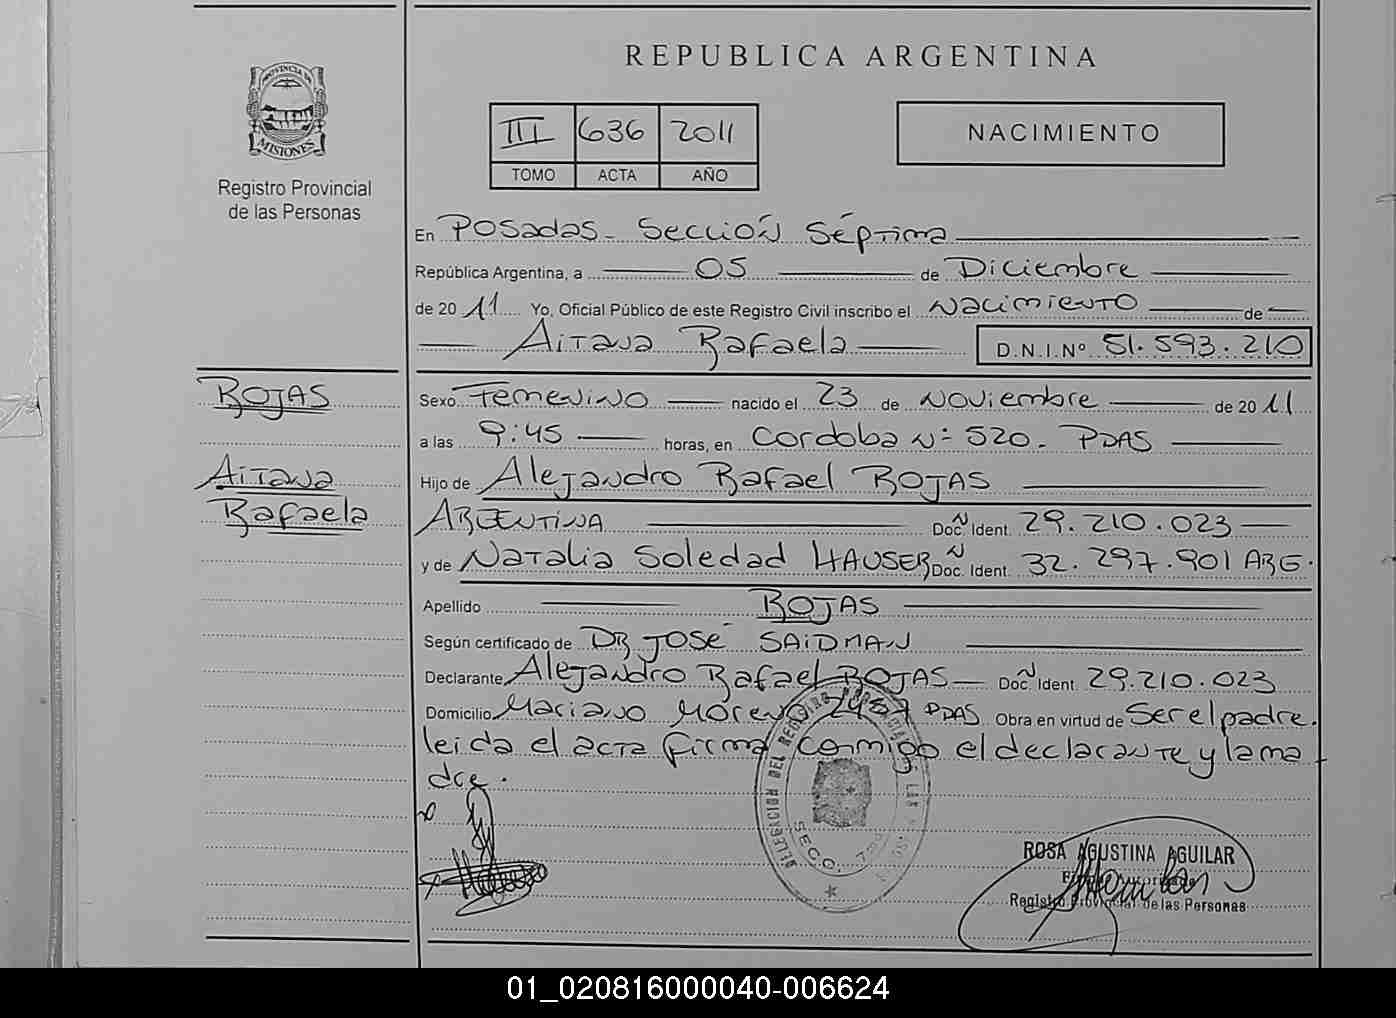 REPUBLICA ARGENTINA
PROVINCIA DE
MISIONES
Registro Provincial
de las Personas
III 636 2011
TOMO ACTA AÑO
NACIMIENTO
En Posadas - Sección Séptima
República Argentina, a 05 de Diciembre
de 2011 Yo, Oficial Público de este Registro Civil inscribo el Nacimiento de
Aitana Rafaela D.N.I.Nº 51.593.210
ROJAS
Aitana
Rafaela
Sexo Femenino nacido el 23 de Noviembre de 2011
a las 9:45 horas, en Cordoba Nº 520 - PDAS
Hijo de Alejandro Rafael ROJAS
ARGENTINA Doc. Ident. 29.210.023
y de Natalia Soledad HAUSER Doc. Ident. 32.297.901 ARG.
Apellido ROJAS
Según certificado de DR JOSÉ SAIDMAN
Declarante Alejandro Rafael ROJAS Doc. Ident. 29.210.023
Domicilio Mariano Moreno PDAS Obra en virtud de Ser el padre.
leida el acta firma conmigo el declarante y la ma
dre.
DELEGACION DEL REGISTRO PROVINCIAL DE LAS
SECC. 7ma
ROSA AGUSTINA AGUILAR
Registro Provincial de las Personas
01_020816000040-006624